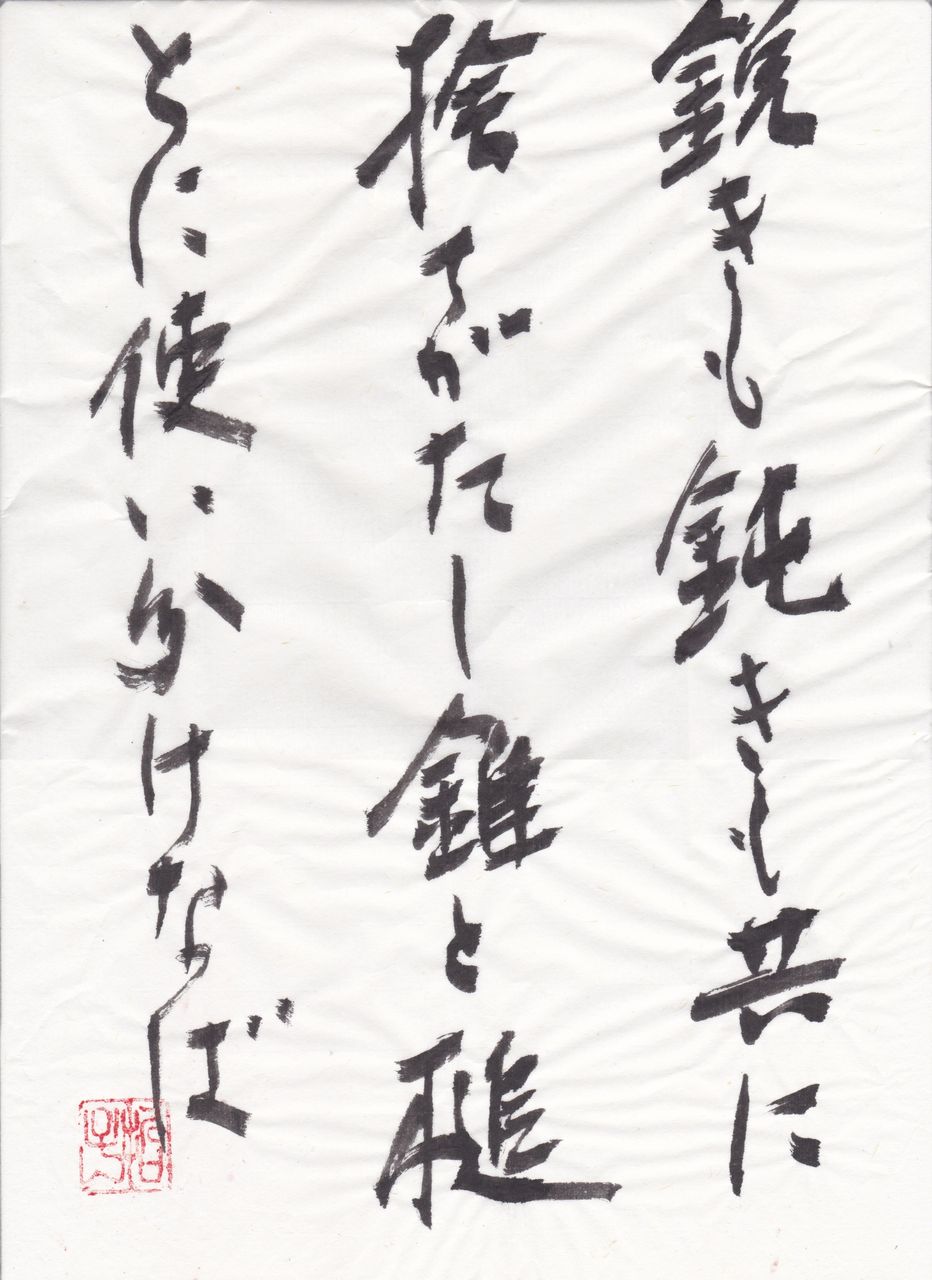 鋭きも鈍きも共に
捨てがたし錐と槌
とに使い分けなば